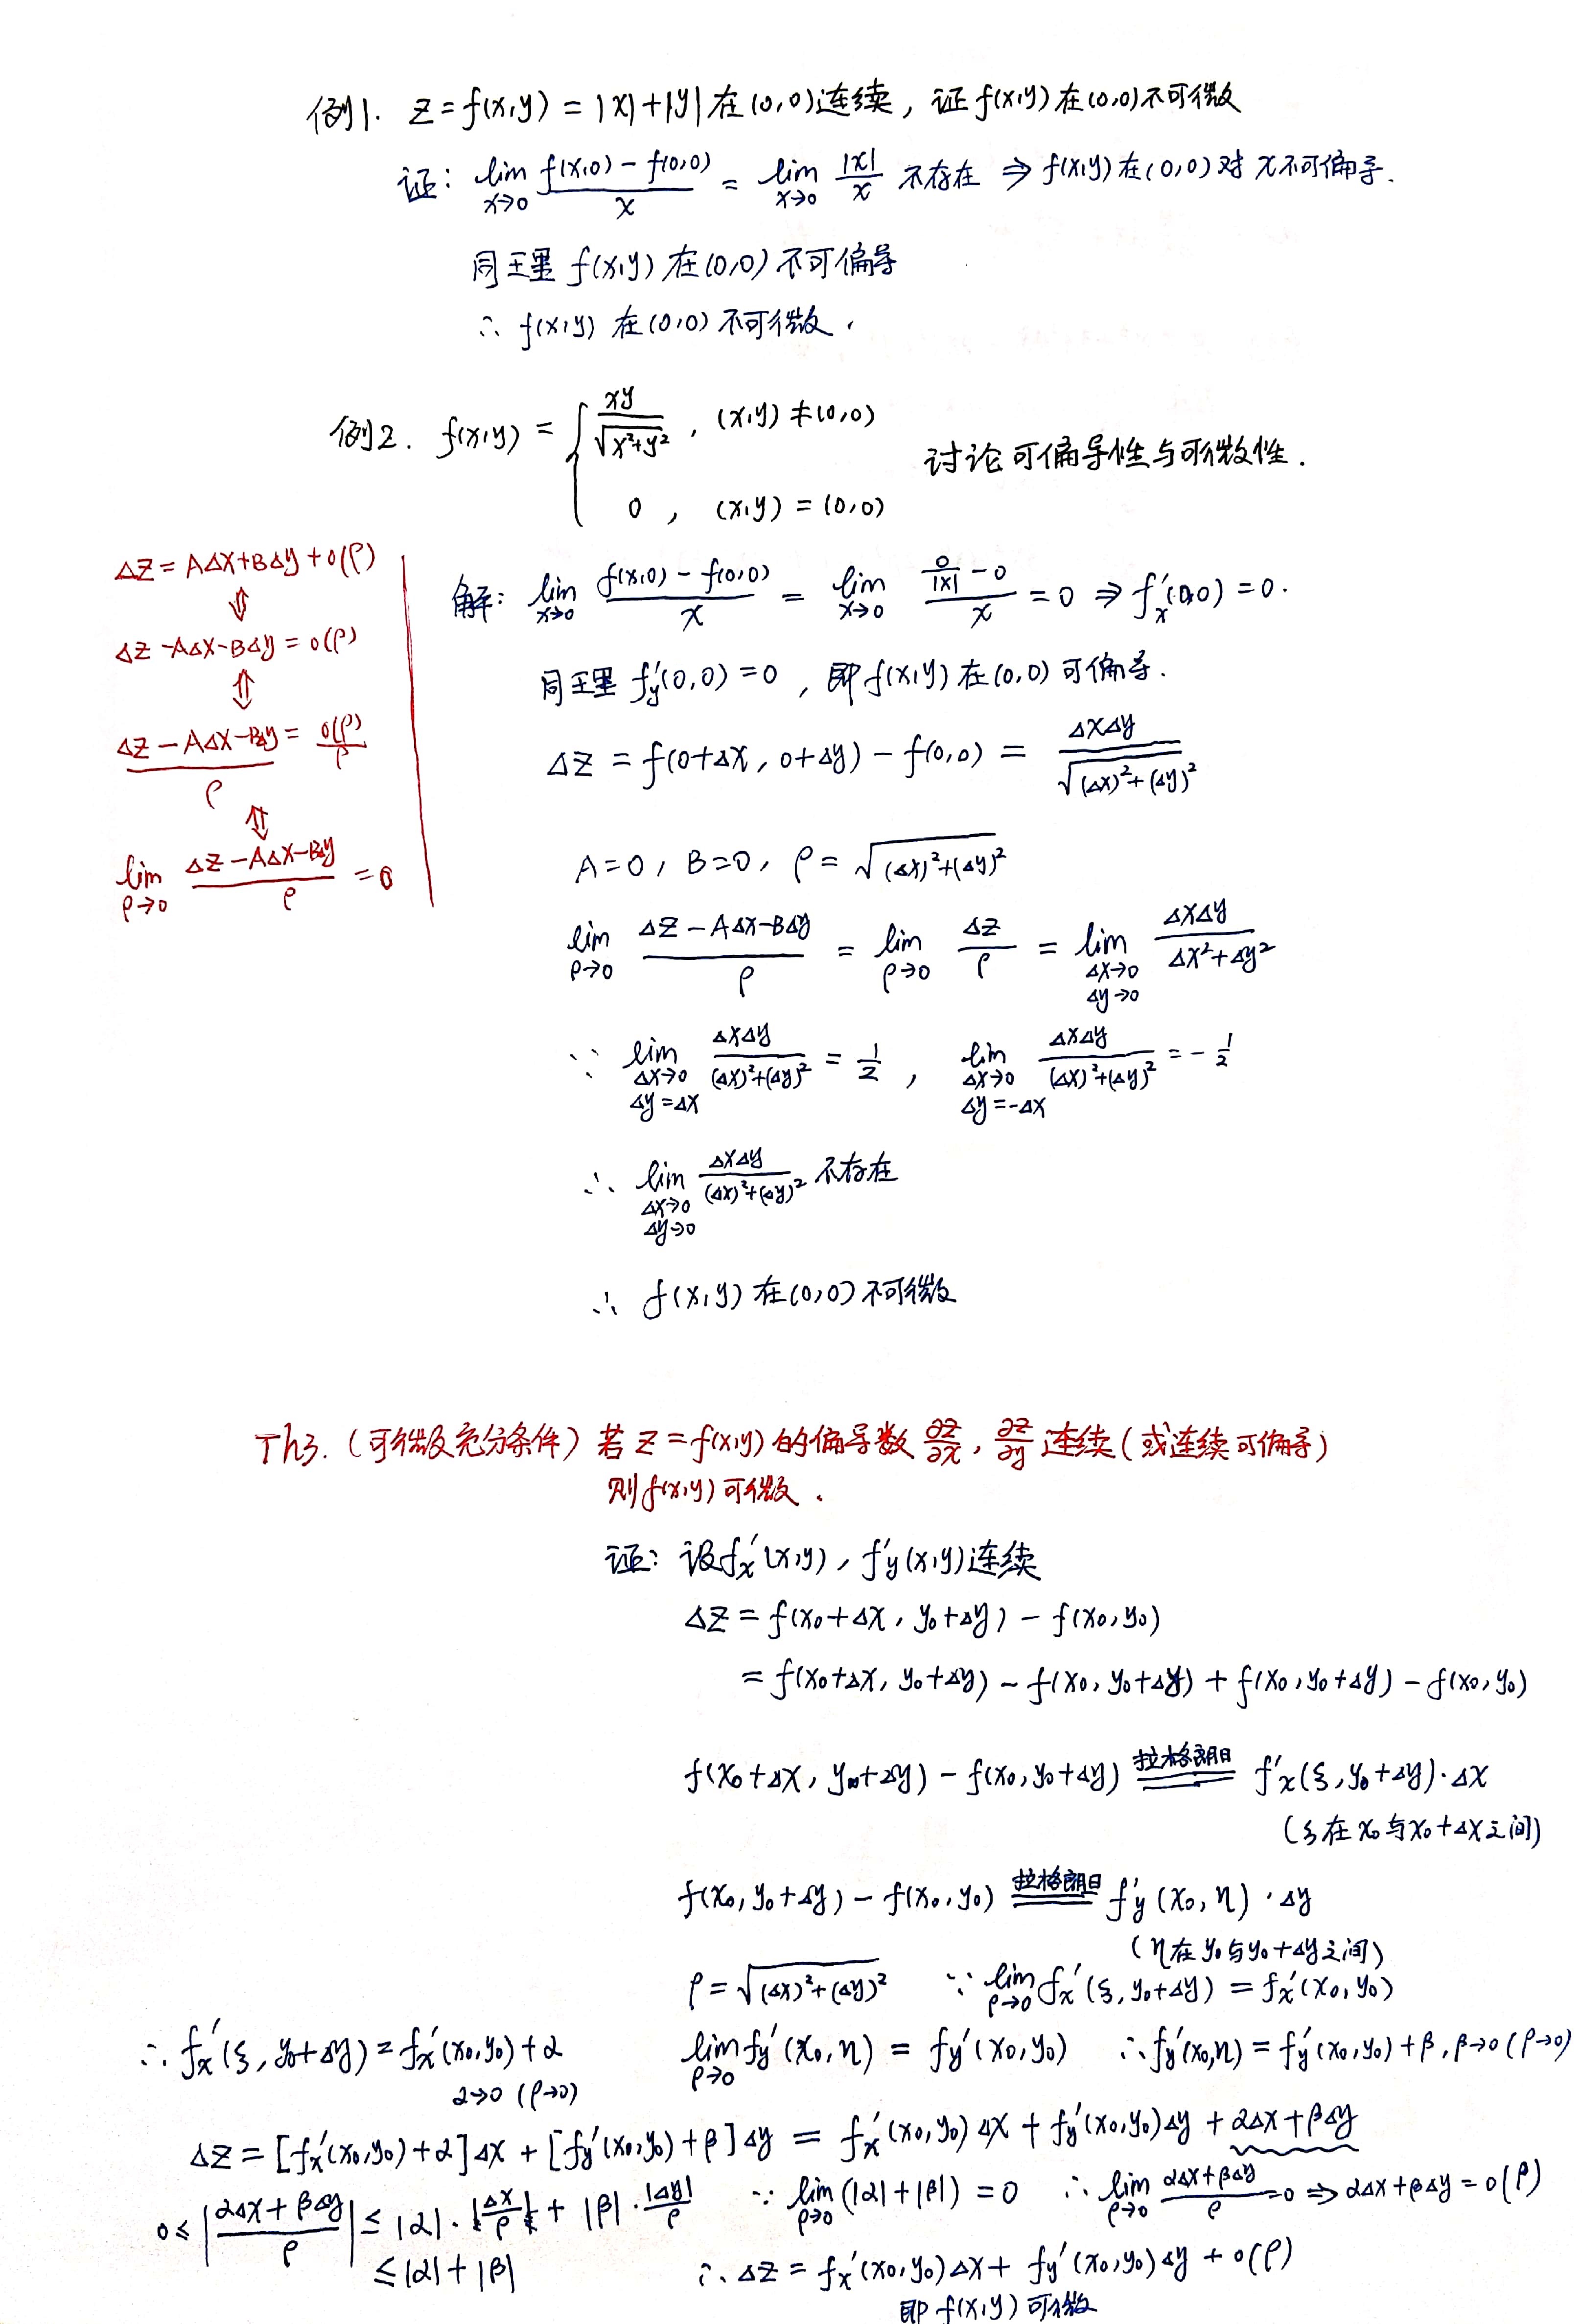 例1. z=f(x,y)=|x|+|y|在(0,0)连续，证f(x,y)在(0,0)不可微
证: lim_{x→0} (f(x,0)-f(0,0))/x = lim_{x→0} |x|/x 不存在 ⇒ f(x,y)在(0,0)对x不可偏导.
同理 f(x,y)在(0,0)不可偏导
∴ f(x,y)在(0,0)不可微.
例2. f(x,y) = { xy/√(x²+y²), (x,y)≠(0,0)
0, (x,y)=(0,0)
讨论可偏导性与可微性.
Δz=AΔx+BΔy+o(ρ)
⇕
Δz-AΔx-BΔy=o(ρ)
⇕
(Δz-AΔx-BΔy)/ρ = o(ρ)/ρ
⇕
lim_{ρ→0} (Δz-AΔx-BΔy)/ρ = 0
解: lim_{x→0} (f(x,0)-f(0,0))/x = lim_{x→0} (0/|x| -0)/x = 0 ⇒ f'x(0,0)=0.
同理 f'y(0,0)=0，即f(x,y)在(0,0)可偏导.
Δz = f(0+Δx, 0+Δy)-f(0,0) = ΔxΔy/√((Δx)²+(Δy)²)
A=0, B=0, ρ=√((Δx)²+(Δy)²)
lim_{ρ→0} (Δz-AΔx-BΔy)/ρ = lim_{ρ→0} Δz/ρ = lim_{Δx→0 Δy→0} ΔxΔy/(Δx²+Δy²)
∵ lim_{Δx→0 Δy=Δx} ΔxΔy/((Δx)²+(Δy)²) = 1/2, lim_{Δx→0 Δy=-Δx} ΔxΔy/((Δx)²+(Δy)²) = -1/2
∴ lim_{Δx→0 Δy→0} ΔxΔy/((Δx)²+(Δy)²) 不存在
∴ f(x,y)在(0,0)不可微
Th3.(可微及充分条件) 若z=f(x,y)的偏导数 ∂z/∂x, ∂z/∂y 连续(或连续可偏导)
则f(x,y)可微.
证: 设f'x(x,y), f'y(x,y)连续
Δz=f(x₀+Δx, y₀+Δy)-f(x₀,y₀)
=f(x₀+Δx, y₀+Δy)-f(x₀, y₀+Δy)+f(x₀, y₀+Δy)-f(x₀,y₀)
f(x₀+Δx, y₀+Δy)-f(x₀,y₀+Δy) 拉格朗日 == f'x(ξ,y₀+Δy)·Δx
(ξ在x₀与x₀+Δx之间)
f(x₀,y₀+Δy)-f(x₀,y₀) 拉格朗日 == f'y(x₀,η)·Δy
(η在y₀与y₀+Δy之间)
ρ=√((Δx)²+(Δy)²) ∵ lim_{ρ→0} f'x(ξ,y₀+Δy)=f'x(x₀,y₀)
∴ f'x(ξ,y₀+Δy)=f'x(x₀,y₀)+α
α→0 (ρ→0)
lim_{ρ→0} f'y(x₀,η)=f'y(x₀,y₀) ∴f'y(x₀,η)=f'y(x₀,y₀)+β, β→0(ρ→0)
Δz=[f'x(x₀,y₀)+α]Δx+[f'y(x₀,y₀)+β]Δy = f'x(x₀,y₀)Δx+f'y(x₀,y₀)Δy+αΔx+βΔy
0≤|(αΔx+βΔy)/ρ|≤|α|·|Δx|/ρ+|β|·|Δy|/ρ ∵ lim_{ρ→0}(|α|+|β|)=0 ∴ lim_{ρ→0} (αΔx+βΔy)/ρ=0 ⇒ αΔx+βΔy=o(ρ)
≤|α|+|β|
∴ Δz=f'x(x₀,y₀)Δx+f'y(x₀,y₀)Δy+o(ρ)
即f(x,y)可微